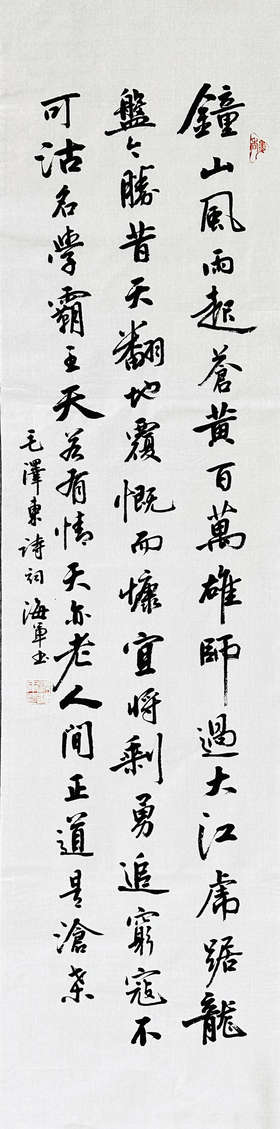 鐘山風雨起蒼黃百萬雄師過大江虎踞龍
盤今勝昔天翻地覆慨而慷宜將剩勇追窮寇不
可沽名學霸王天若有情天亦老人間正道是滄桑
毛澤東詩詞 海軍书